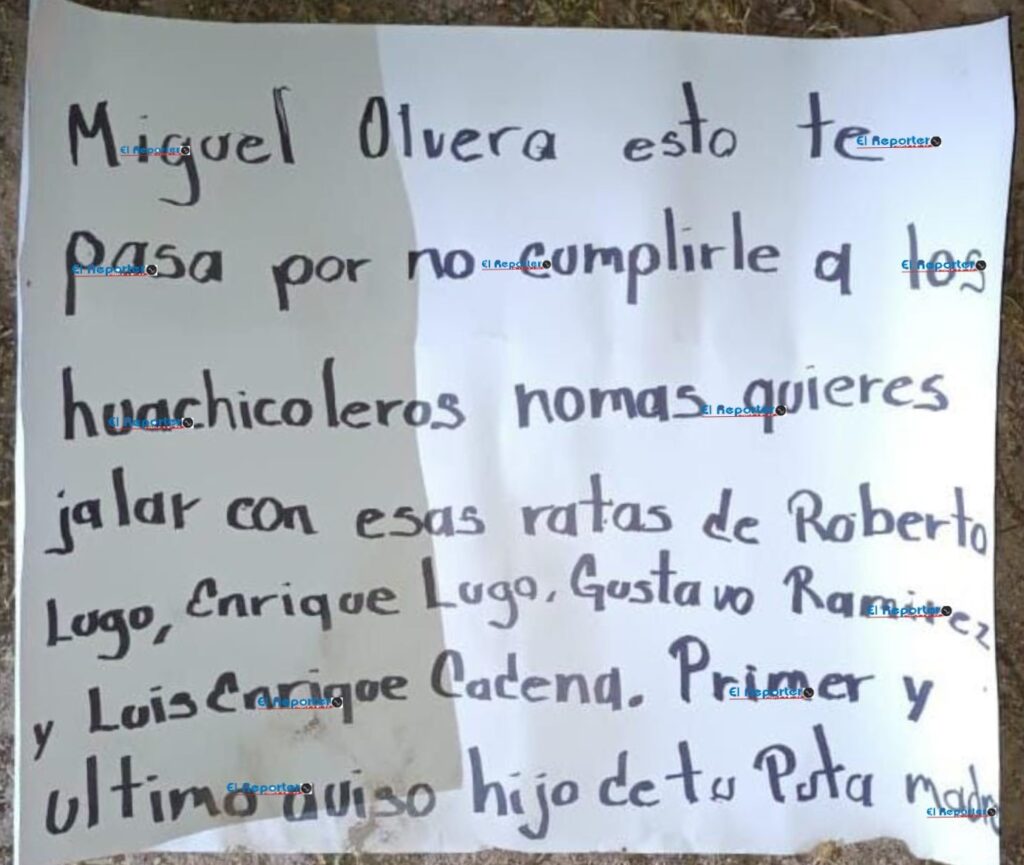 Miguel Olvera esto te
pasa por no cumplirle a los
huachicoleros nomas quieres
jalar con esas ratas de Roberto
Lugo, Enrique Lugo, Gustavo Ramirez
y Luis Enrique Cadena. Primer y
ultimo aviso hijo de tu Puta madre
El Reportero
El Reportero
El Reportero
El Reportero
El Reportero
El Reportero
El Reportero
El Reportero
El Reportero
El Reportero
El Reportero
El Reportero